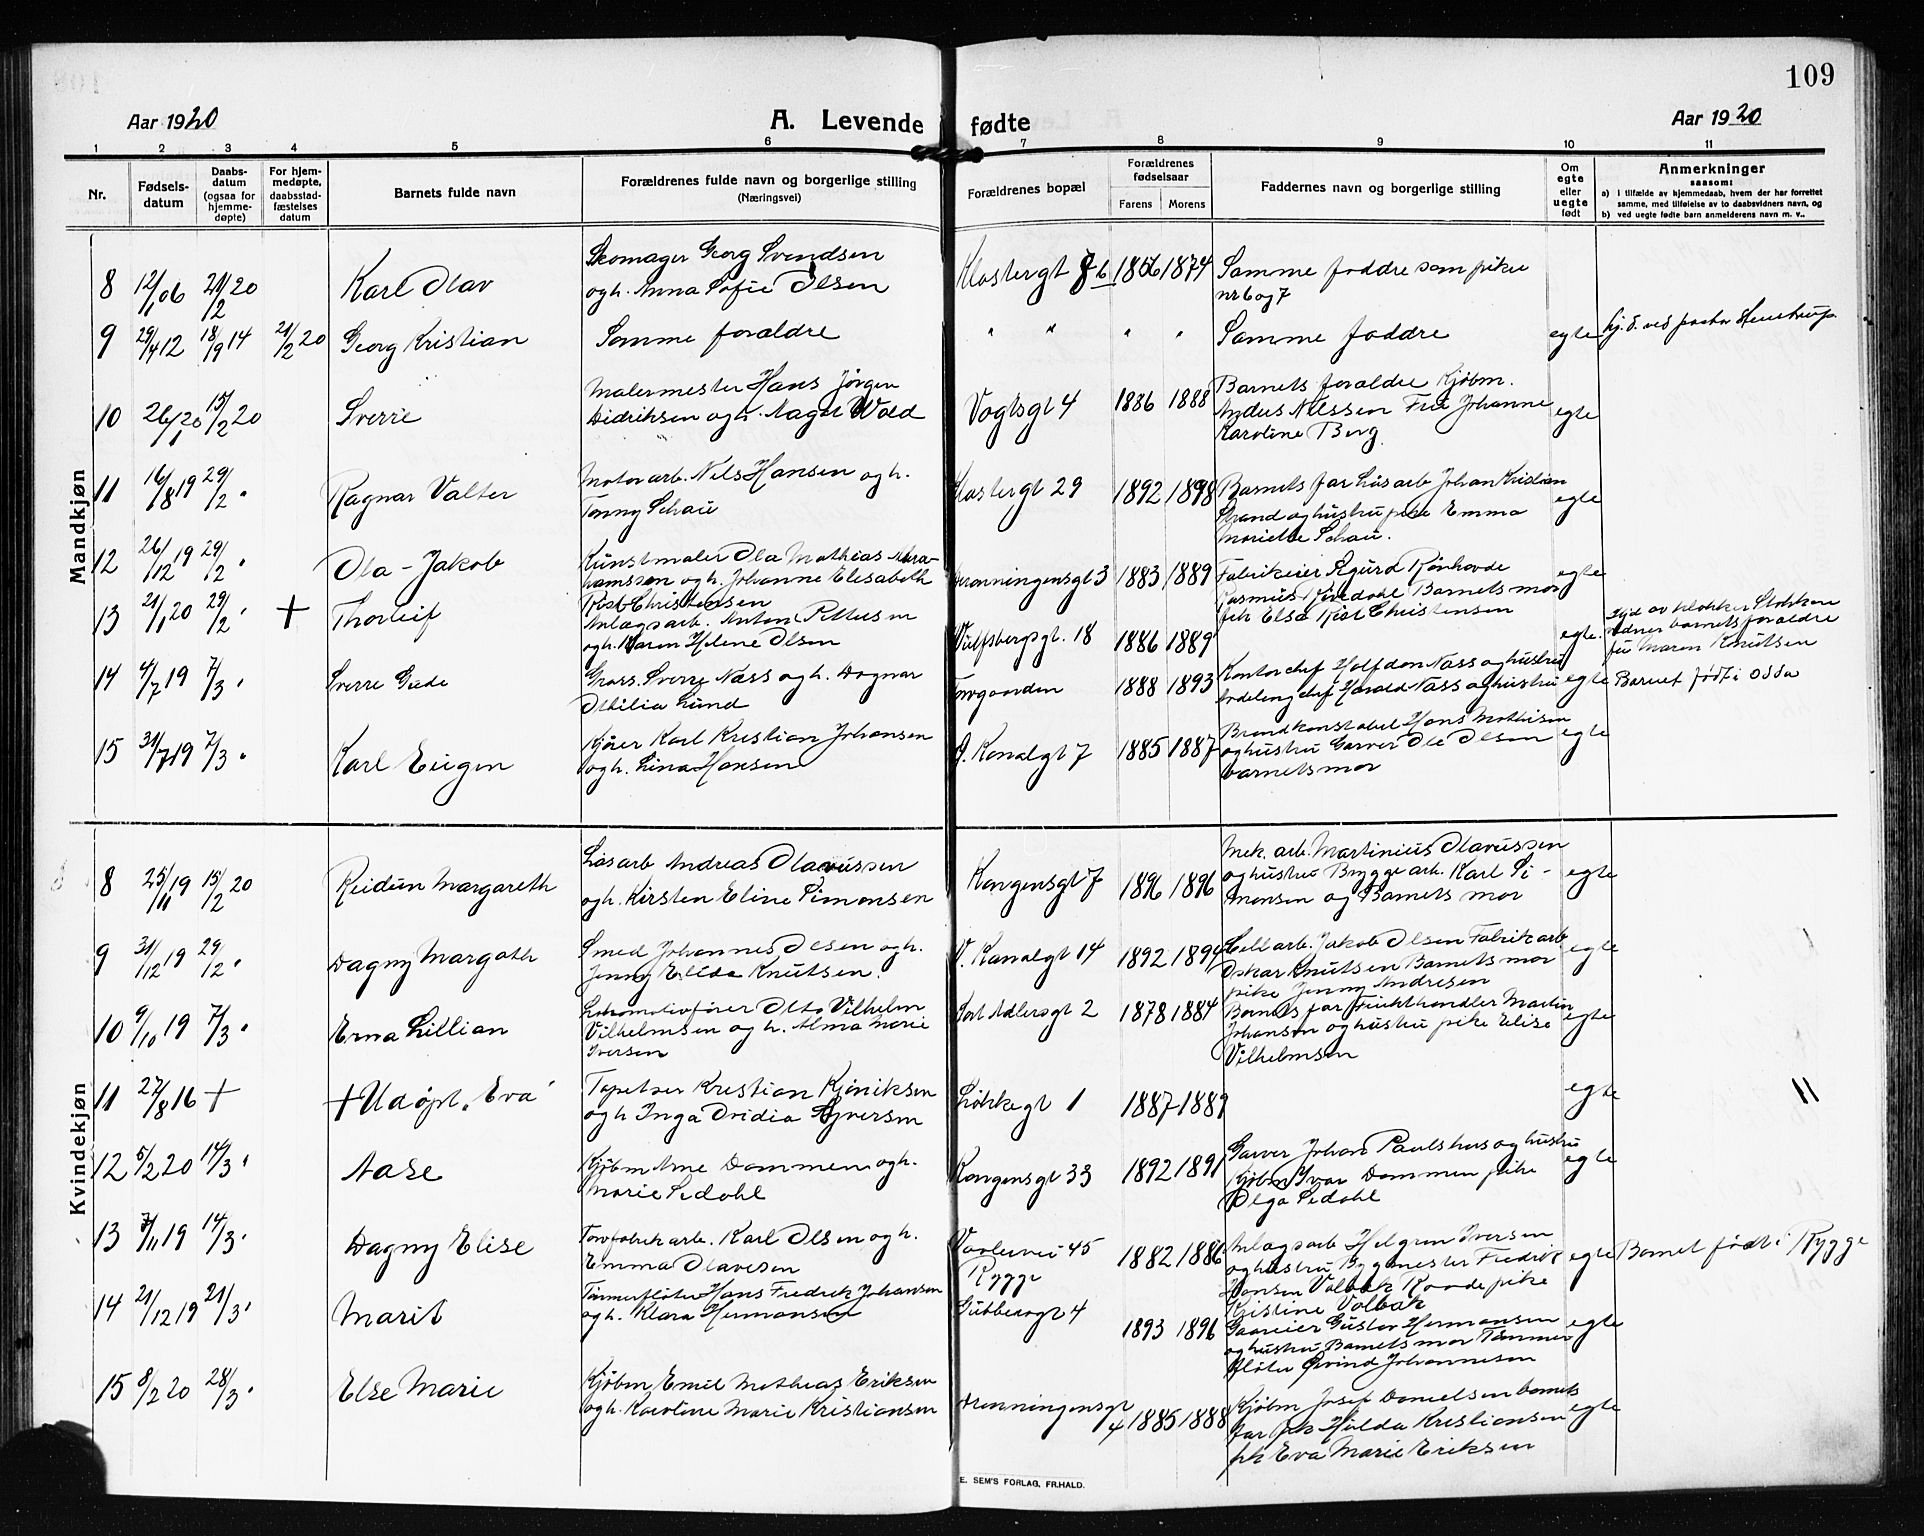 109
Aar 1920
A. Levende fødte
Aar 1920
1 2 3 4 5 6 7 8 9 10 11
Nr.
Fødsels-
datum
Daabs-
datum
(ogsaa for
hjemme-
døpte)
For hjem-
medøpte,
daabsstad-
fæstelses
datum
Barnets fulde navn
Forældrenes fulde navn og borgerlige stilling
(Næringsvei)
Forældrenes bopæl
Forældrenes
fødselsaar
Farens Morens
Faddernes navn og borgerlige stilling
Om
egte
eller
uegte
født
Anmerkninger
saasom:
a) i tilfælde av hjemmedaab, hvem der har forrettet
samme, med tilføielse av to daabsvidners navn, og
b) ved uegte fødte barn anmelderens navn m. v..
Mandkjøn
8 12/1 06 21/2 20 Karl Olav
Skomager Georg Svendsen
og h. Anna Sofie Olsen
Klostergt 6 1874
Samme faddre som pike
nr 6 og 7
9 29/4 12 18/9 14 21/2 20 Georg Kristian
Samme forældre
" " " "
Samme faddre
egte
hj. d. ved pastor
10 26/1 20 15/2 20 Sverre
Malermester Hans Jørgen
Didriksen og h. Aagot Wold
Vogtsgt 4 1886 1888
Barnets forældre Kjøbm.
Nilssen Fru Johanne
Karoline Berg
egte
11 16/8 19 29/2 " Ragnar Valter
Motorarb. Nils Hansen og h.
Tonny Schau
Klostergt 29 1892 1898
Barnets far Løsarb Johan Kristian
Strand og hustru pike Emma
Mariette Schau.
egte
12 26/12 19 29/2 " Ola-Jakob
Kunstmaler Ola Mathias Abra-
hamsson og h. Johanne Elisabeth
Rist-Christensen
Dronningensgt 3 1883 1889
Fabrikeier Sigurd Rønhovde
Rasmus Barnets mor
frk Elsa Rist Christensen
egte
13 21/1 20 29/2 " + Thorleif
Anlægsarb. Anton Pettersen
og h. Maren Helene Olsen
Vulfsbergsgt. 18 1886 1889
egte.
av klokker
vidner barnets forældre
fru Maren Knutsen
14 4/7 19 7/3 " Sverre Gude
Gross. Sverre Næss og h. Dagnar
Othilia Lund
Torvgaarden 1888 1893
Kontorchef Halfdan Næss og hustru
Harald Næss og hustru
egte
Barnet født i Odda
15 31/7 19 7/3 " Karl Eugen
Kjører Karl Kristian Johansen
og h. Lina Hansen
Ø. Kanalgt 7 1885 1887
Brandkonstabel Hans Mathisen
og hustru Garver Ole Olsen
barnets mor
egte
Kvindekjøn
8 25/11 19 15/2 20 Reidun Margareth
Løsarb Andreas Olavussen
og h. Kirsten Eline Simonsen
Kongensgt 7 1896 1896
Mek. arb. Martinius Olavussen
og hustru Brygge arb. Karl Si-
monsen og Barnets mor
egte
9 31/12 19 29/2 " Dagny Margoth
Smed Johannes Olsen og h.
Jenny Elida Knutsen.
V. Kanalgt 14 1892 1894
Cell arb. Jakob Olsen Fabrikarb
Oskar Knutsen Barnets mor
pike Jenny Andresen
egte
10 9/10 19 7/3 " Erna Lillian
Lokomotivfører Otto Vilhelm
Vilhelmsen og h. Alma Marie
Iversen
Tord Adlersgt 2 1878 1884
Barnets far Frukthandler Martin
Johansen og hustru pike Elise
Vilhelmsen
egte
11 27/8 16 + + Udøpt "Eva"
Tapetser Kristian Kjøniksen
og h Inga Ovidia Syversen
Løkkegt 1 1887 1889
egte
12 5/2 20 14/3 " Aase
Kjøbm Arne Dammen og h.
Marie Sedahl
Kongensgt 33 1892 1891
Garver Johan Paulshus og hustru
Kjøbm Ivar Dammen pike
Olga Sedahl
egte
13 7/11 19 14/3 " Dagny Elise
Torvfabrikarb. Karl Olsen og h.
Emma Olavesen
Varlevei 45
Rygge
1882 1886
Anlægsarb Helgren Iversen
og hustru Bygmester Fredrik
Hansen Volbak Raade pike
Kristine Volbak
egte
Barnet født i Rygge
14 21/12 19 21/3 " Marit
Tømmerfløter Hans Fredrik Johansen
og h. Klara Hermansen
Gubbeogt 4 1893 1896
Gaareier Gustav Hermansen
og hustru Barnets mor Tømmer
fløter Øivind Johannesen
egte
15 8/2 20 28/3 " Else Marie
Kjøbm Emil Mathias Eriksen
og h. Karoline Marie Kristiansen
Dronningensgt
4 1885 1888
Kjøbm Josef Danielsen barnets
far frk Hulda Kristiansen
frk Eva Marie Eriksen
egte
E. SEM'S FORLAG, FR.HALD.